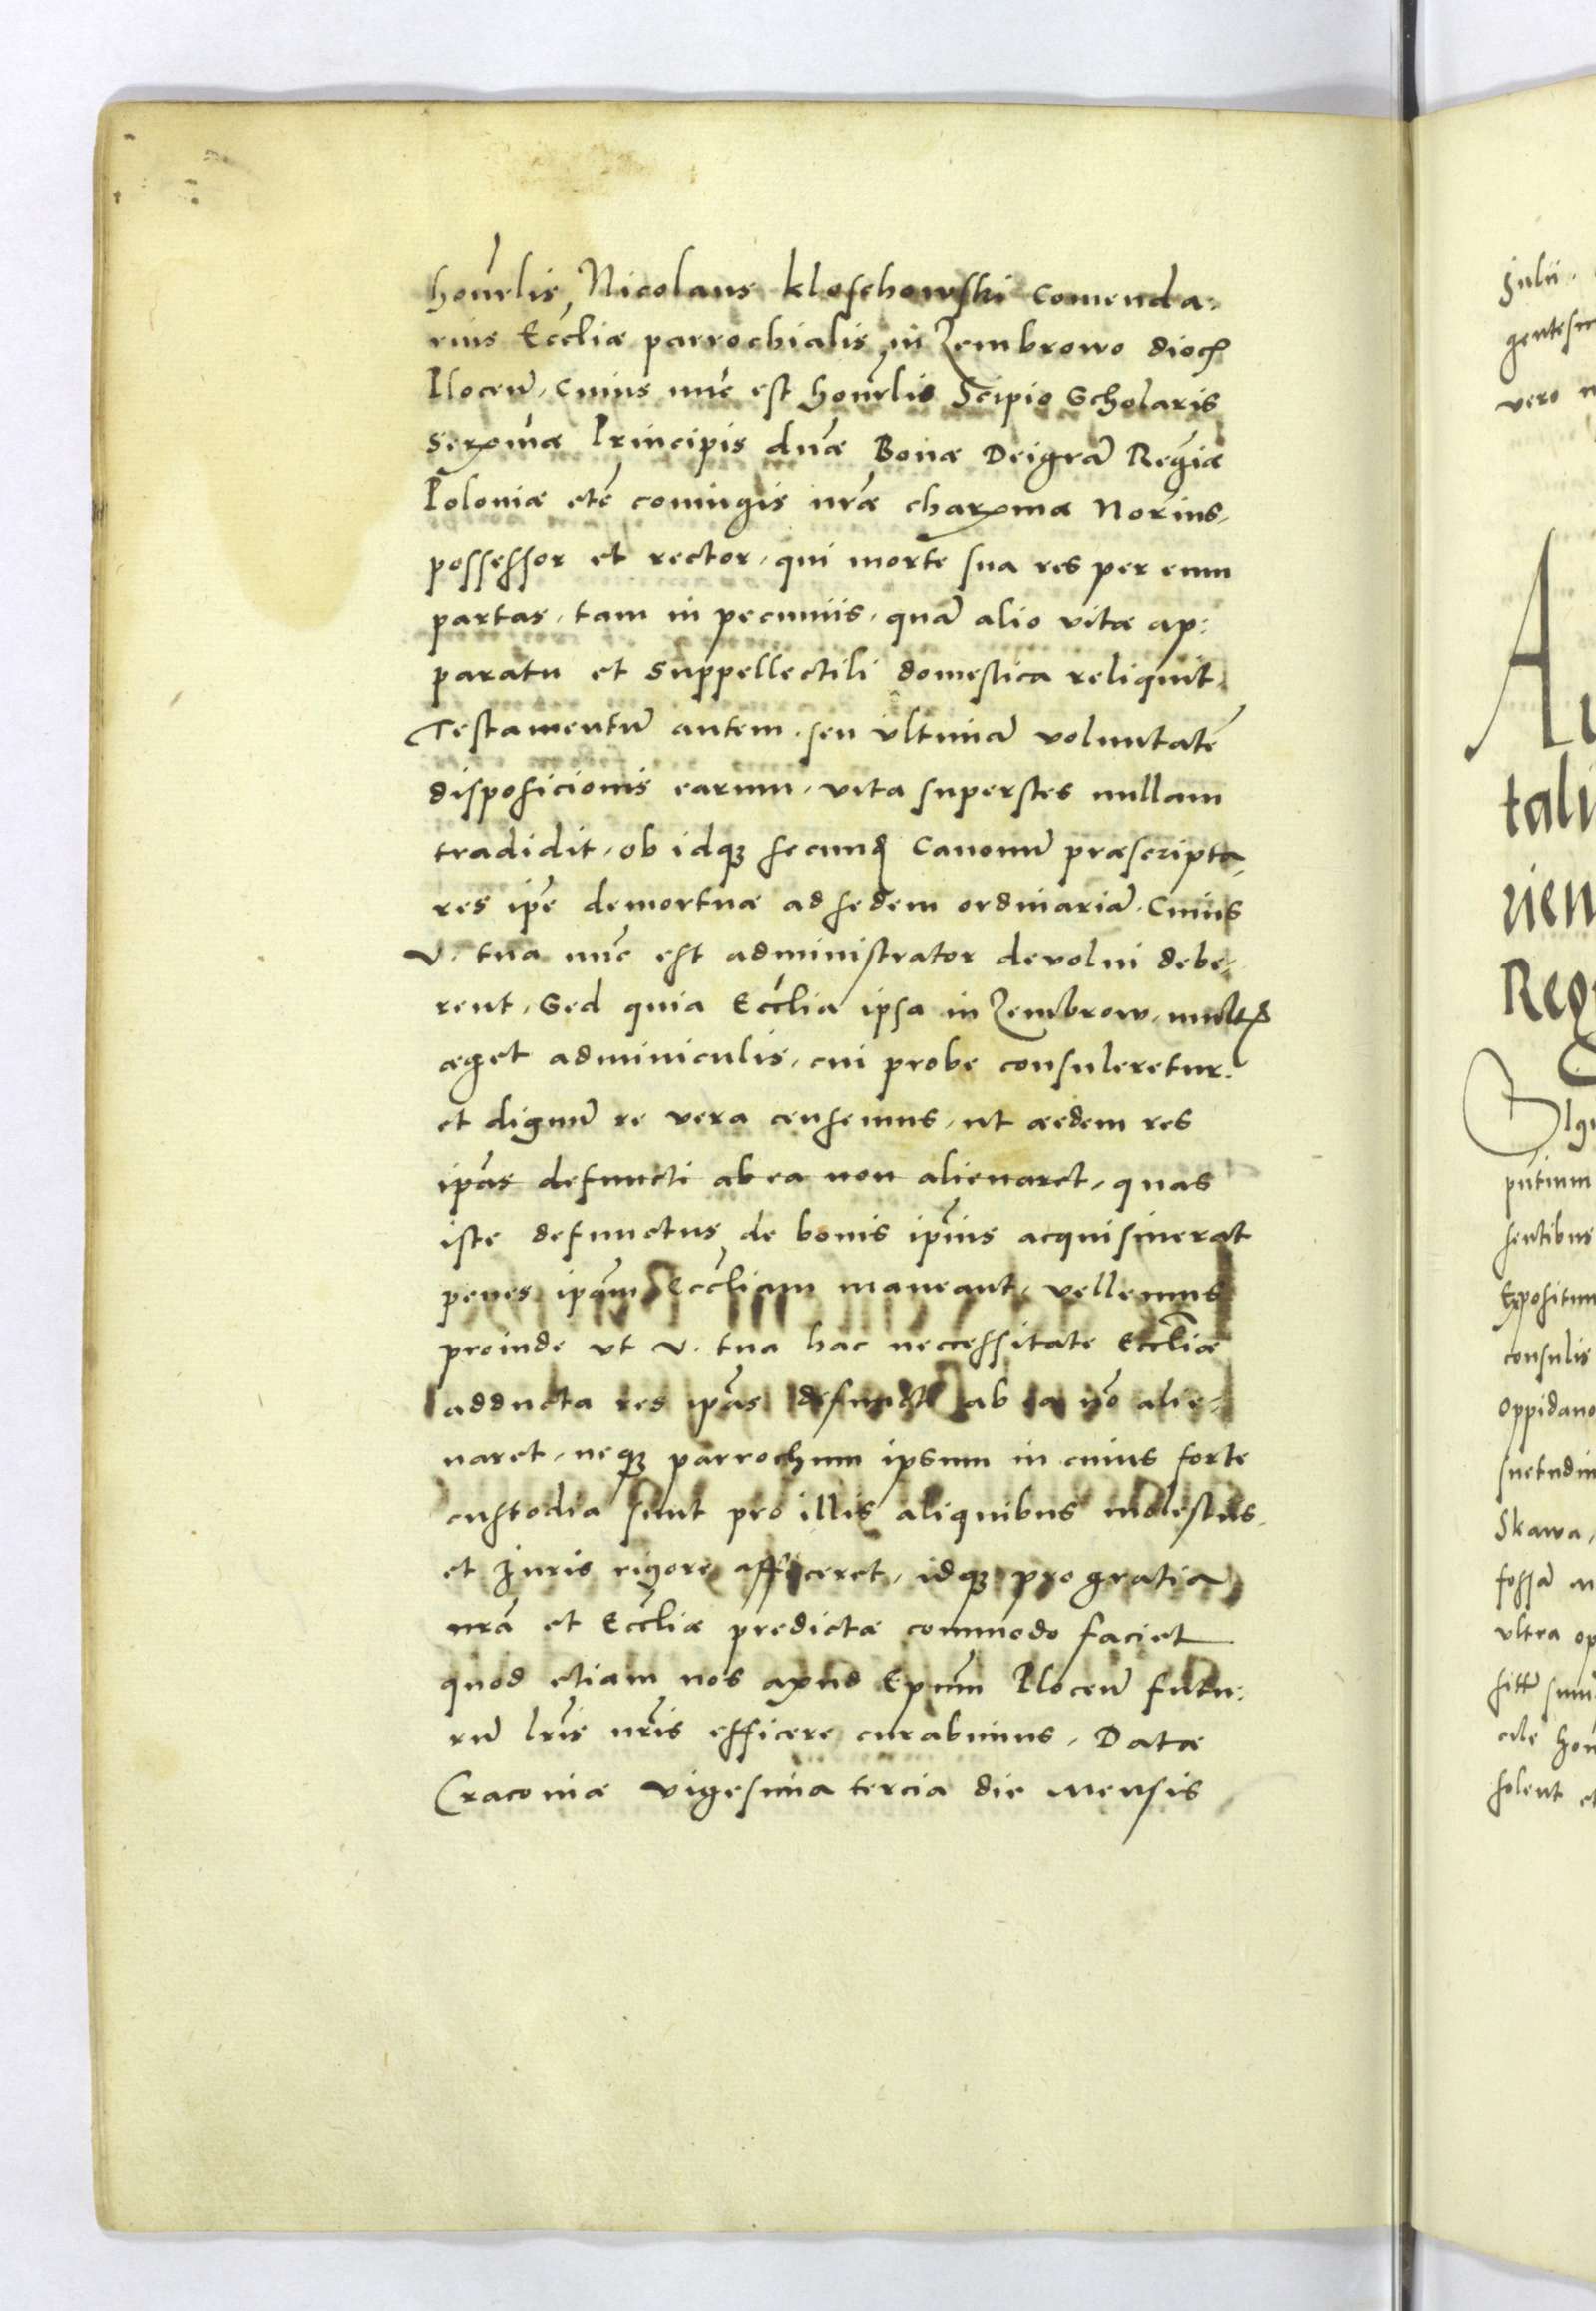 honrlis Nicolaus Kloschowski comenda:
rius Eccliæ parrochialis in Zembrowo dioc
Plocen̄, cuius nūc est honrlis Scipio Scholaris
serexmæ Principis dn̄æ Bonæ Dei gra Reginæ
Poloniæ etc̄ coniugis nrǣ charxmæ Norius,
possessor et rector, qui morte sua res per eum
partas, tam in pecuniis, quā alio vitæ ap:
paratu et suppellectili domestica reliquit,
Testamentū autem, seu vltimā voluntatē
disposicionis earum, vita superstes nullam
tradidit, ob idq; secund Canonū præscripta,
res ip̄e demortuæ ad sedem ordinariā, Cuius
v. tua nūc est administrator devolui debe,
rent, Sed quia Ecclia ipsa in Zembrow, mult
æget adminiculis, cui probe consuleretur,
et dignū re vera censemus, ut aedem res
ip̄as defuncti ab ea non alienaret, quas
iste defunctus de bonis ip̄ius acquisiuerat
penes ip̄am Eccliam maneant, vellemus
proinde vt v. tua hac neccessitate Eccliæ
adducta res ip̄as defuncti ab ea nō alie:
naret, neq; parrochum ipsum in cuius forte
custodia sunt pro illis aliquibus molestus,
et Juris rigore afficeret, idq; pro gratia
nrā et Eccliæ predictæ commodo faciet
quod etiam nos apud Ep̄um Plocen̄ futu:
rū lrīs nrīs efficere curabimus, Datæ
Cracoviæ vigesima tercia die mensis
Julii.
vero
tali
rien
Reg
putium
sentibus
Expositum
consulis
oppidano
suetudin
Skawa,
fossā
vltra op
solent et